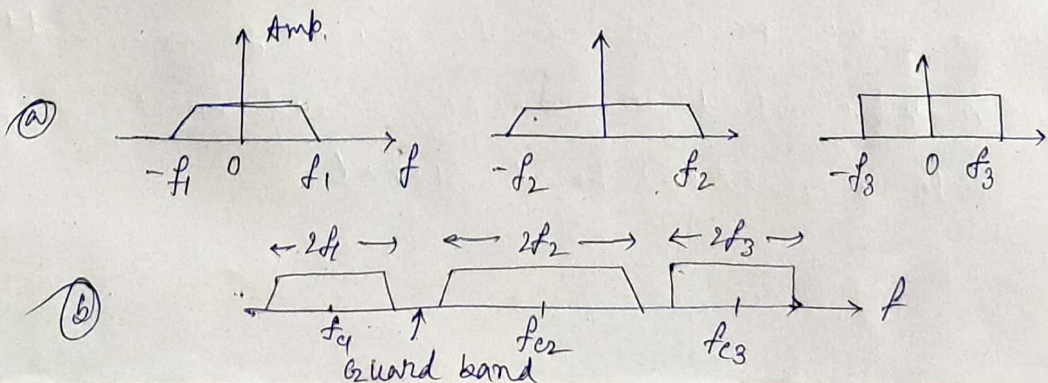 Amp.
(a)
-f1 0 f1 f
-f2 f2
-f3 0 f3
← 2f1 → ← 2f2 → ← 2f3 →
(b)
f
fc1 fc2 fc3
Guard band